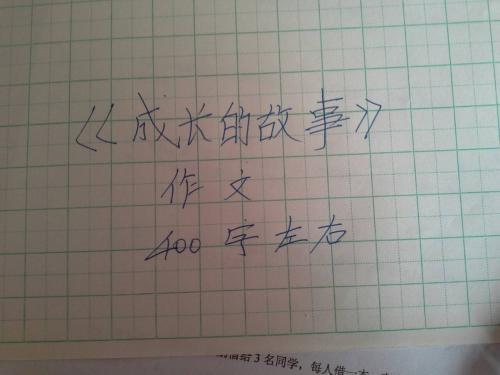 《成长的故事》
作文
400字左右
借给3名同学，每人借一本